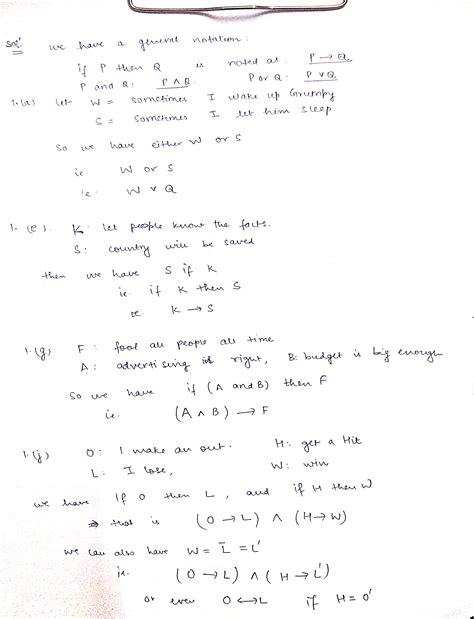 Sol' we have a general notation:
if P then Q is noted as: P → Q
P and Q: P ∧ Q P or Q: P ∨ Q
1.(a) Let W = sometimes I wake up Grumpy
S = sometimes I let him sleep
So we have either W or S
ie. W or S
ie. W ∨ Q
1. (e). K: let people know the facts.
S: country will be saved
then we have S if K
ie. if K then S
ie. K → S
1.(g) F: fool all people all time
A: advertising is right, B: budget is big enough
So we have if (A and B) then F
ie. (A ∧ B) → F
1.(j) O: I make an out. H: get a Hit
L: I lose, W: win
we have If O then L, and if H then W
⇒ that is (O → L) ∧ (H → W)
we can also have W = L̄ = L'
ie. (O → L) ∧ (H → L')
or even O ↔ L if H = O'